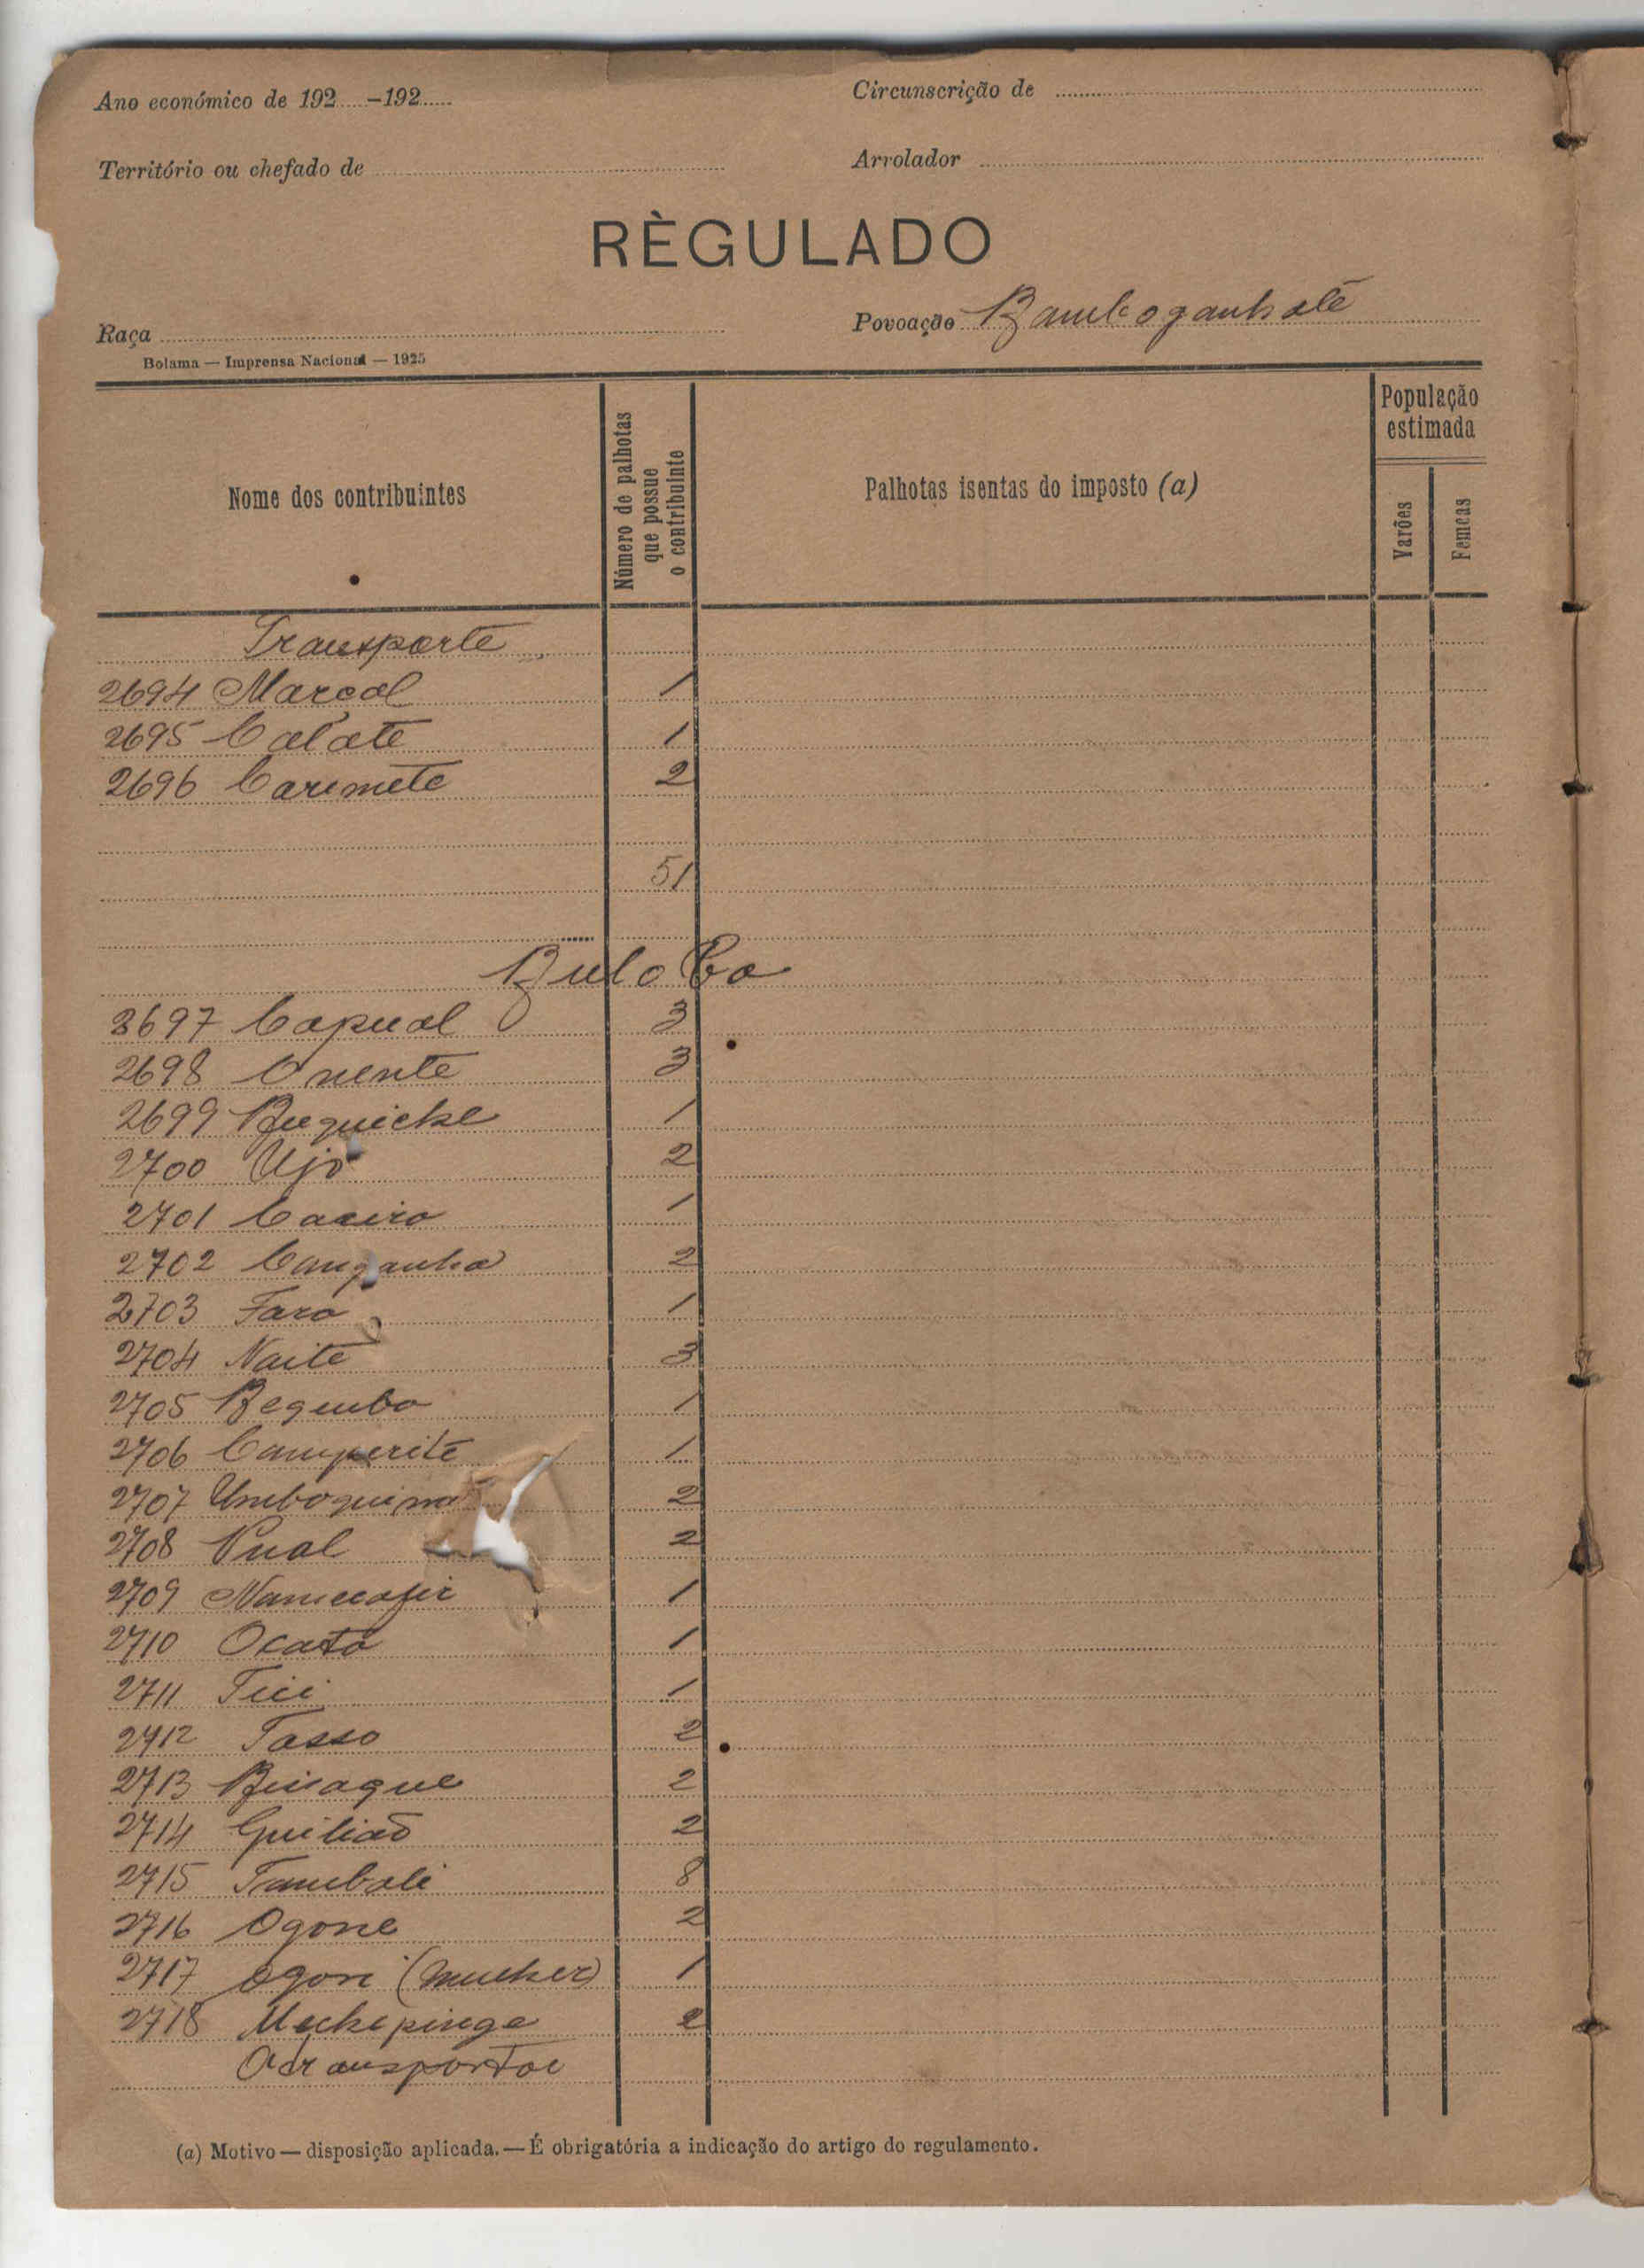 Ano económico de 192.....–192.....
Circunscrição de
Território ou chefado de
Arrolador
RÈGULADO
Raça
Povoação
Bolama — Imprensa Nacional — 1925
Nome dos contribuintes
Número de palhotas que possue o contribuinte
Palhotas isentas do imposto (a)
População estimada
Varões
Femeas
Transporte
2694 Marçal 1
2695 Calate 1
2696 Caremete 2
51
Bulo Co
3697 Capual 3
2698 3
2699 1
2700 Ujo 2
2701 1
2702 Canganha 2
2703 Faro 1
2704 Naite 3
2705 Begumbo 1
2706 Camperite 1
2707 Umboquina 2
2708 2
2709 1
2710 Ocato 1
2711 Tici 1
2712 Tasso 2
2713 2
2714 Guilião 2
2715 Tambali 8
2716 Ogone 2
2717 Ogon (mulher) 1
2718 2
A transportar
(a) Motivo — disposição aplicada. — É obrigatória a indicação do artigo do regulamento.